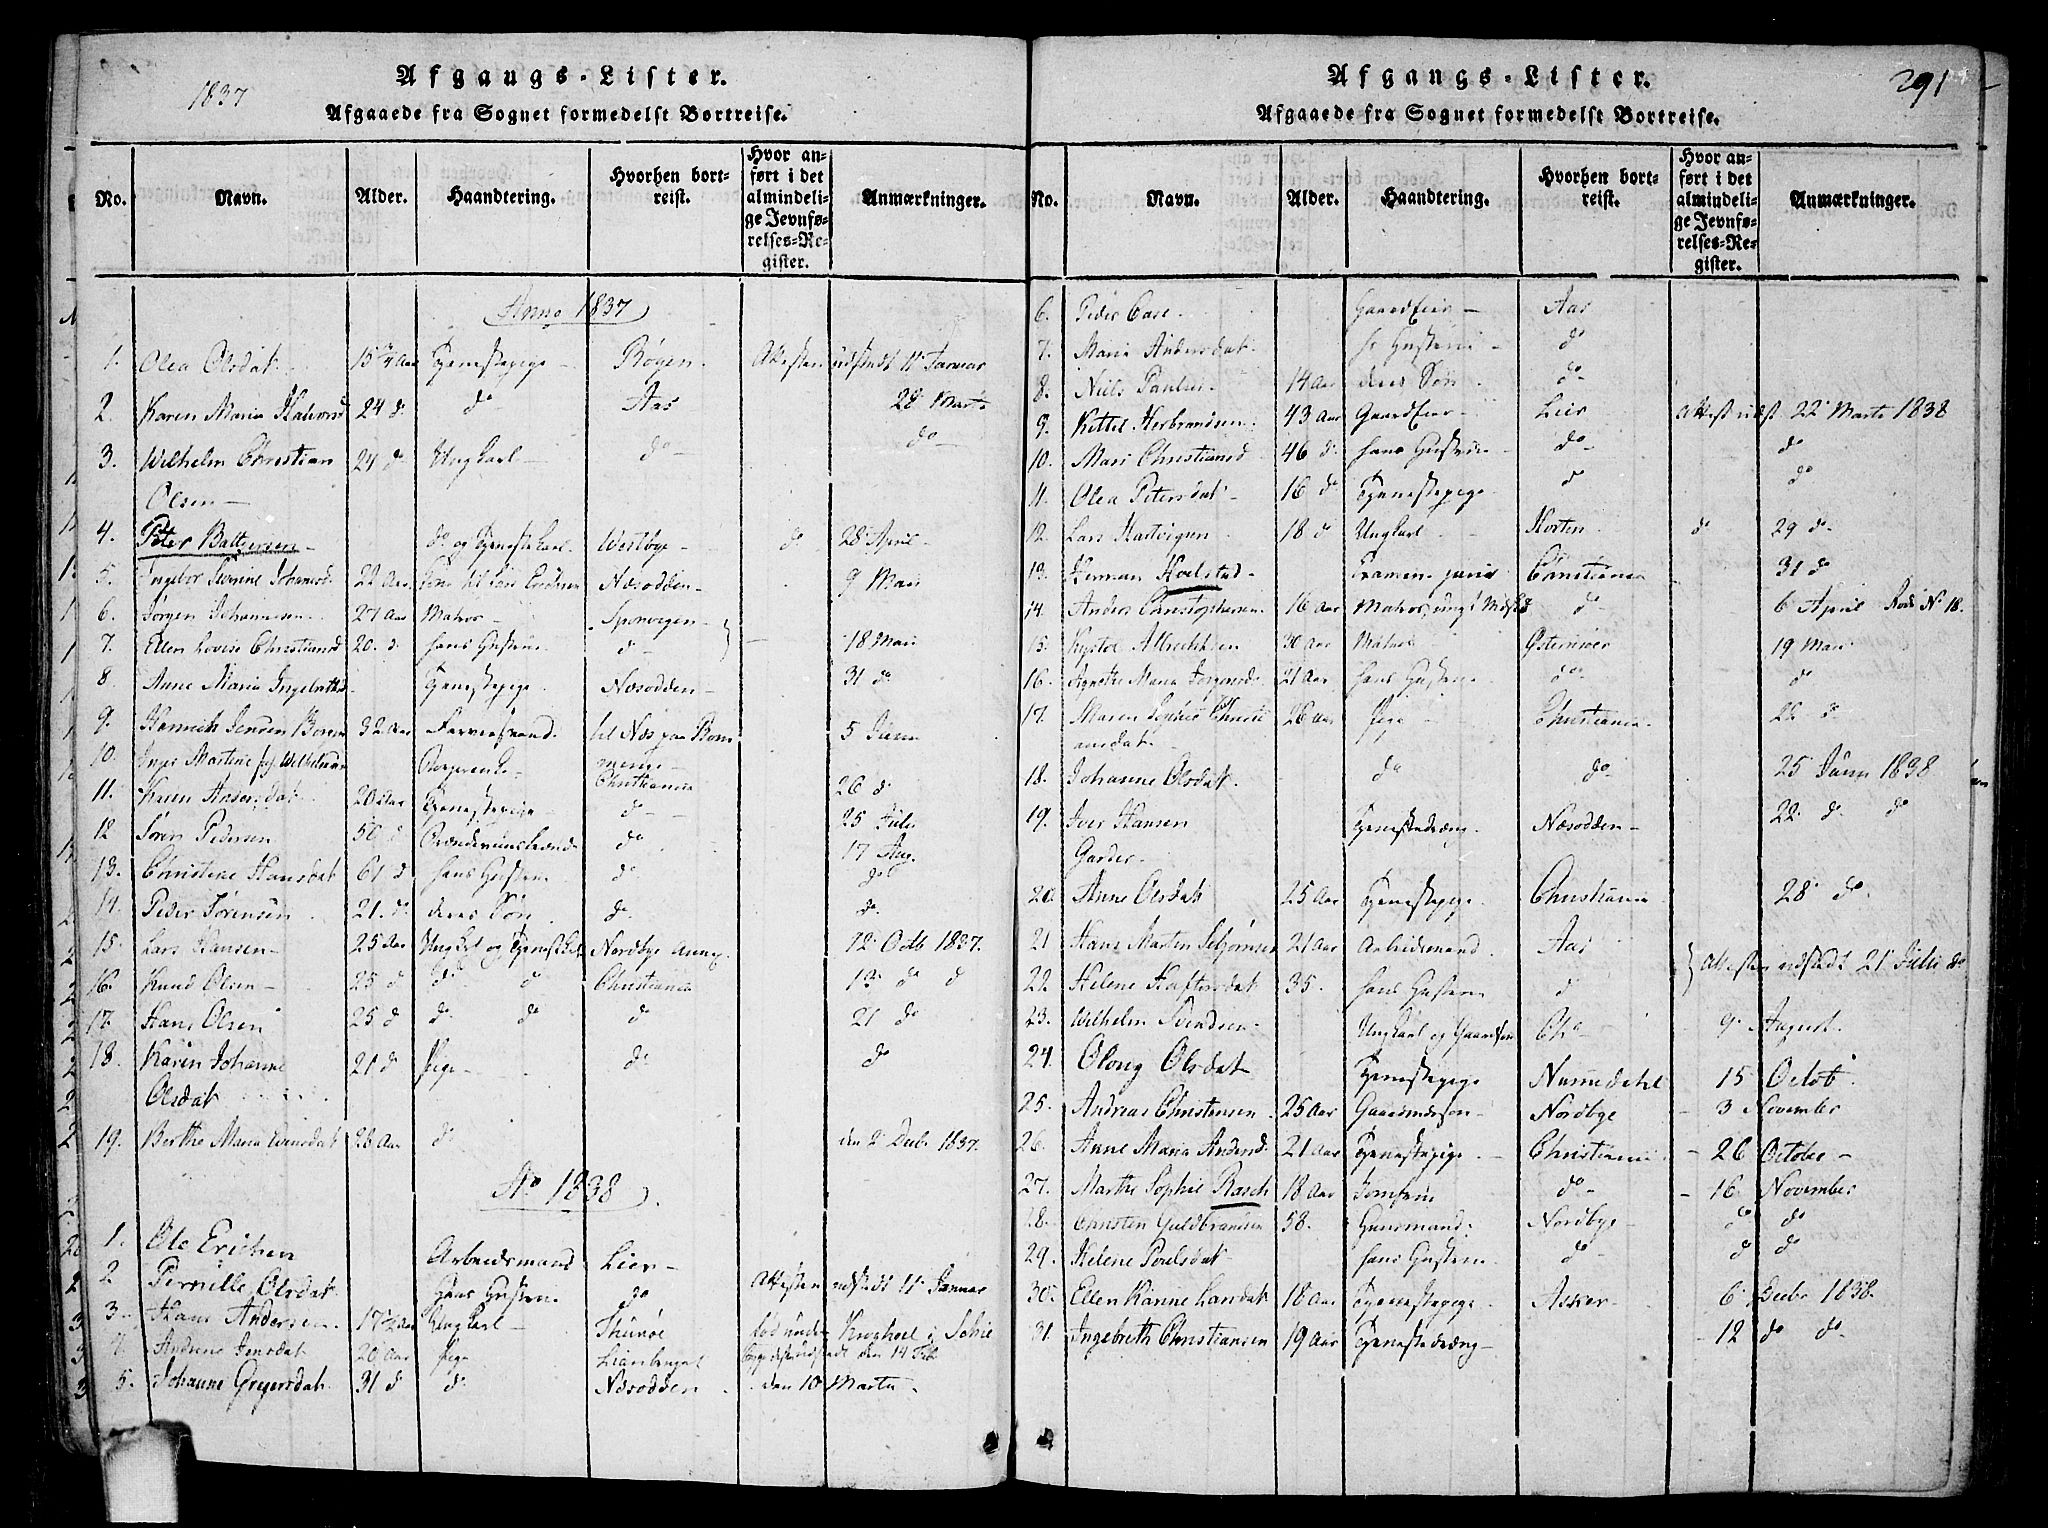 1837
Afgangs-Lister.
Afgaaede fra Sognet formedelst Bortreise.
No. Navn. Alder. Haandtering. Hvorhen bortreist. Hvor anført i det almindelige Jevnførelses-Register. Anmærkninger.
Anno 1837
1. Olea Olsdat. 15 Aar Tjenestepige Bøgen. Attesten udstædt 11 Januar
2. Karen Maria Halvorsd 24 d do Aas 28 Marts
3. Wilhelm Christian 24 d Ungkarl do do
Olsen
4. Peter Baltzersen do og Tjenestekarl Westbye d 28 April
5. Ingebor Severine Johansd. 22 Aar Næsodden 9 Mai
6. Jørgen Johannesen 27 Aar Matros
7. Ellen Lovise Christiansd 20 d. hans Hustrue d 18 Mai
8. Anne Maria Ingebrethsd Tjenestepige Næsodden 31 do
9. Henrich Jensen 32 Aar til Næs paa Rom 5 Juni
10. Inger Martine Borgerenke merige
11. Karen Andersdat 20 Aar Tjenestepige Christiania 26 d
12 Søren Pedersen 50 d do 25 Juli
13. Christine Hansdat 61 d hans Hustrue do 17 Aug.
14. Peder Sørensen 21. d. deres Søn do do.
15. Lars Hansen 25 Aar Ungkl og Tjenestekl Nordbye Annex. 12 Octb 1837.
16. Knud Olsen 25 d do d Christiania 13 d d
17. Hans Olsen 25 d d do d 21 do
18. Karen Johanne 21 d Pige do do
Olsdat
19. Berthe Maria 26 Aar d den 2 Decb. 1837.
Ao 1838.
1. Ole Erichsen Arbeidsmand Lier
2 Pernille Olsdat. Hans Hustrue do Attesten udstædt 11 Januar
3. Hans Andersen 17½ Aar Ungkarl Thurøe
4. Andrine Jensdat 20 Aar Pige den 14 Feb
5. Johanne Gregersdat. 31 d d Næsodden den 10 Marts.
291
Afgangs-Lister.
Afgaaede fra Sognet formedelst Bortreise.
No. Navn. Alder. Haandtering. Hvorhen bortreist. Hvor anført i det almindelige Jevnførelses-Register. Anmærkninger.
6. Peder Gaardeier Aas
7. Maria Andersdat Hustrue do
8. Niels Paulsen 14 Aar deres Søn do
9. Kittel Herbrandsen 43 Aar Gaardeier Lier Attest udst 22 Marts 1838
10. Mari Christiansd 46 d. hans Hustrue do do
11. Olea Petersdat 16 do Tjenestepige d do
12. Lars Hartvigsen 18 d Ungkarl Horten d 29 d.
13. Herman Hoelstad Examen juris Christiania 31 d
14. Anders Christophersen 16 Aar do 6 April No 18.
15. Albrechtsen 30 Aar Matros Østerriisør 19 Mai
16. Agnethe Maria Jørgensd. 21 Aar hans Hustrue do do
17. Maren Sophie Christi 26 Aar Pige Christiania 22 d
ansdat
18. Johanne Olsdat. do do 25 Juni 1838
19. Iver Hansen Tjenestedreng Næsodden 22 d d
Garder
20. Anne Olsdat 25 Aar Tjenestepige Christiania 28 do
21 Hans Martin 21 Aar Arbeidsmand Aas
22 Helene Haftorsdat 35. hans Hustrue d } Attesten udstædt 21 Juli do
23. Wilhelm Svendsen Ungkarl og Cha 9 August.
24. Olong Olsdat Tjenestepige Nummedahl 15 Octob
25. Andreas Christensen 25 Aar Gaardmdsøn Nordbye 3 November
26. Anne Maria Andersd. 21 Aar Tjenestepige Christiania 26 October
27. Marthe Sophie Rasch 18 Aar Jomfrue do 16 November
28. Christen Guldbrandsen 58. Huusmand Nordbye do do
29. Helene Poulsdat hans Hustrue d d do
30. Ellen Karine Larsdat 18 Aar Tjenestepige Asker 6 Decbr 1838.
31. Ingebreth Christiansen 19 Aar Tjenestedreng 12 do do